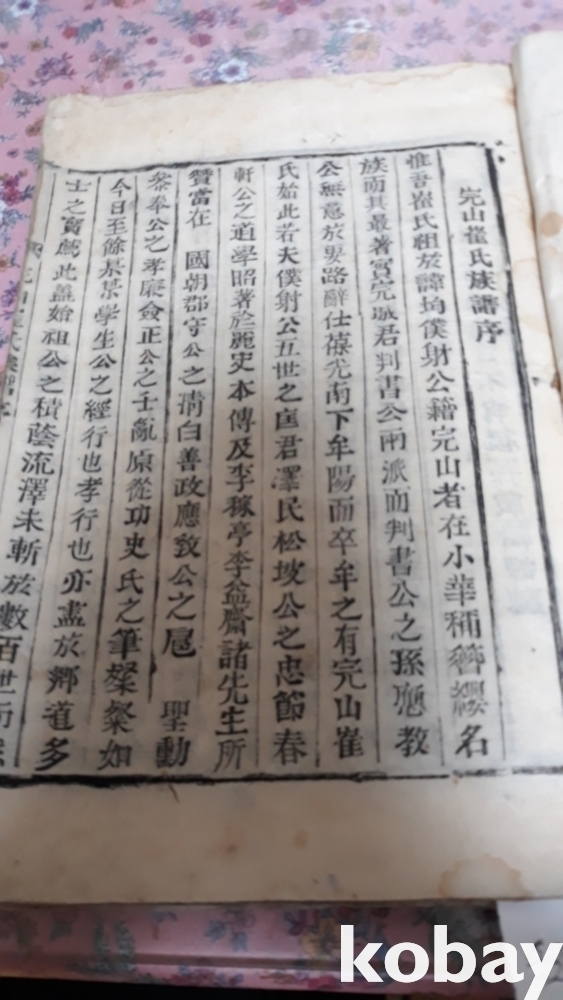 完山崔氏族譜序
惟吾崔氏祖於諱均僕射公籍完山者在小華稱簪纓名
族而其最著實完城君判書公兩派而判書公之孫 教
公無意於要路辭仕 光南下牟陽而卒牟之有完山崔
氏始此若夫僕射公五世之匡君澤民松坡公之忠節春
軒公之道學昭著於麗史本傳及李稼亭李益齋諸先生所
贊當在 國朝郡守公之淸白善政應敎公之扈 聖動
參奉公之孝廉僉正公之壬亂原從功史氏之筆粲粲如
今日至餘某某學生公之經行也孝行也亦盡於鄕道多
士之實薦此盖始祖公之積蔭流澤未斬於數百世
kobay